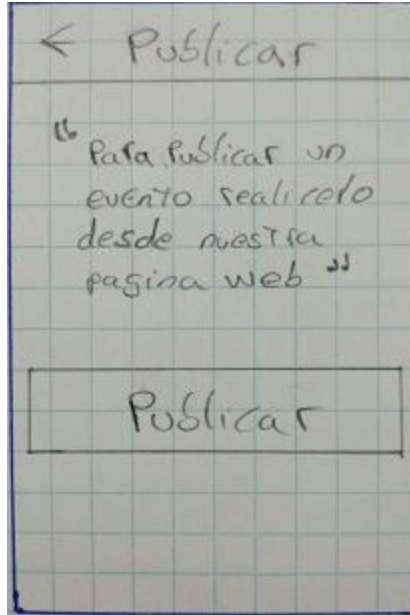 < Publicar
"Para Publicar un
evento realicelo
desde nuestra
pagina web"
Publicar